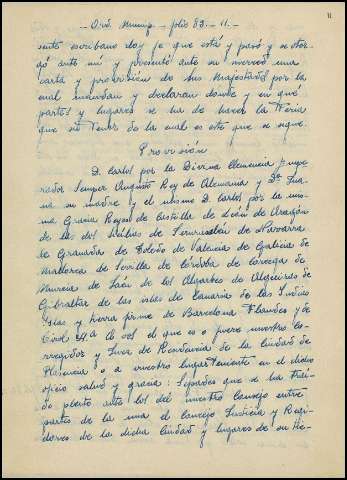 11
- Ord. Munic. - folio 83. - 11. -
sente escribano doy fe que está y pasó y se otor-
gó ante mí y presentó ante su merced una
carta y provisión de sus Magestades por la
cual mandan y declaran donde y en qué
partes y lugares se ha de hacer la Feria
que su tenor de la cual es este que se sigue.
Provisión
D. Carlos por la Divina Clemencia Empe-
rador Semper Augusto Rey de Alemania y Dª Jua-
na su madre y el mismo D. Carlos por la mis-
ma Gracia Reyes de Castilla de León de Aragón
de las dos Sicilias de Jerusalén de Navarra
de Granada de Toledo de Valencia de Galicia de
Mallorca de Sevilla de Córdoba de Córcega de
Murcia de Jaén de los Algarbes de Algeciras de
Gibraltar de las islas de Canaria de las Indias
Islas y tierra firme de Barcelona Flandes y de
Tirol &ª A vos el que es o fuere nuestro Co-
rregidor y Juez de Residencia de la Ciudad de
Plasencia o a vuestro lugarteniente en el dicho
oficio salud y gracia: Sepades que se ha trai-
do pleito ante los del nuestro Consejo entre
partes de la una el Concejo Justicia y Regi-
dores de la dicha Ciudad y lugares de su